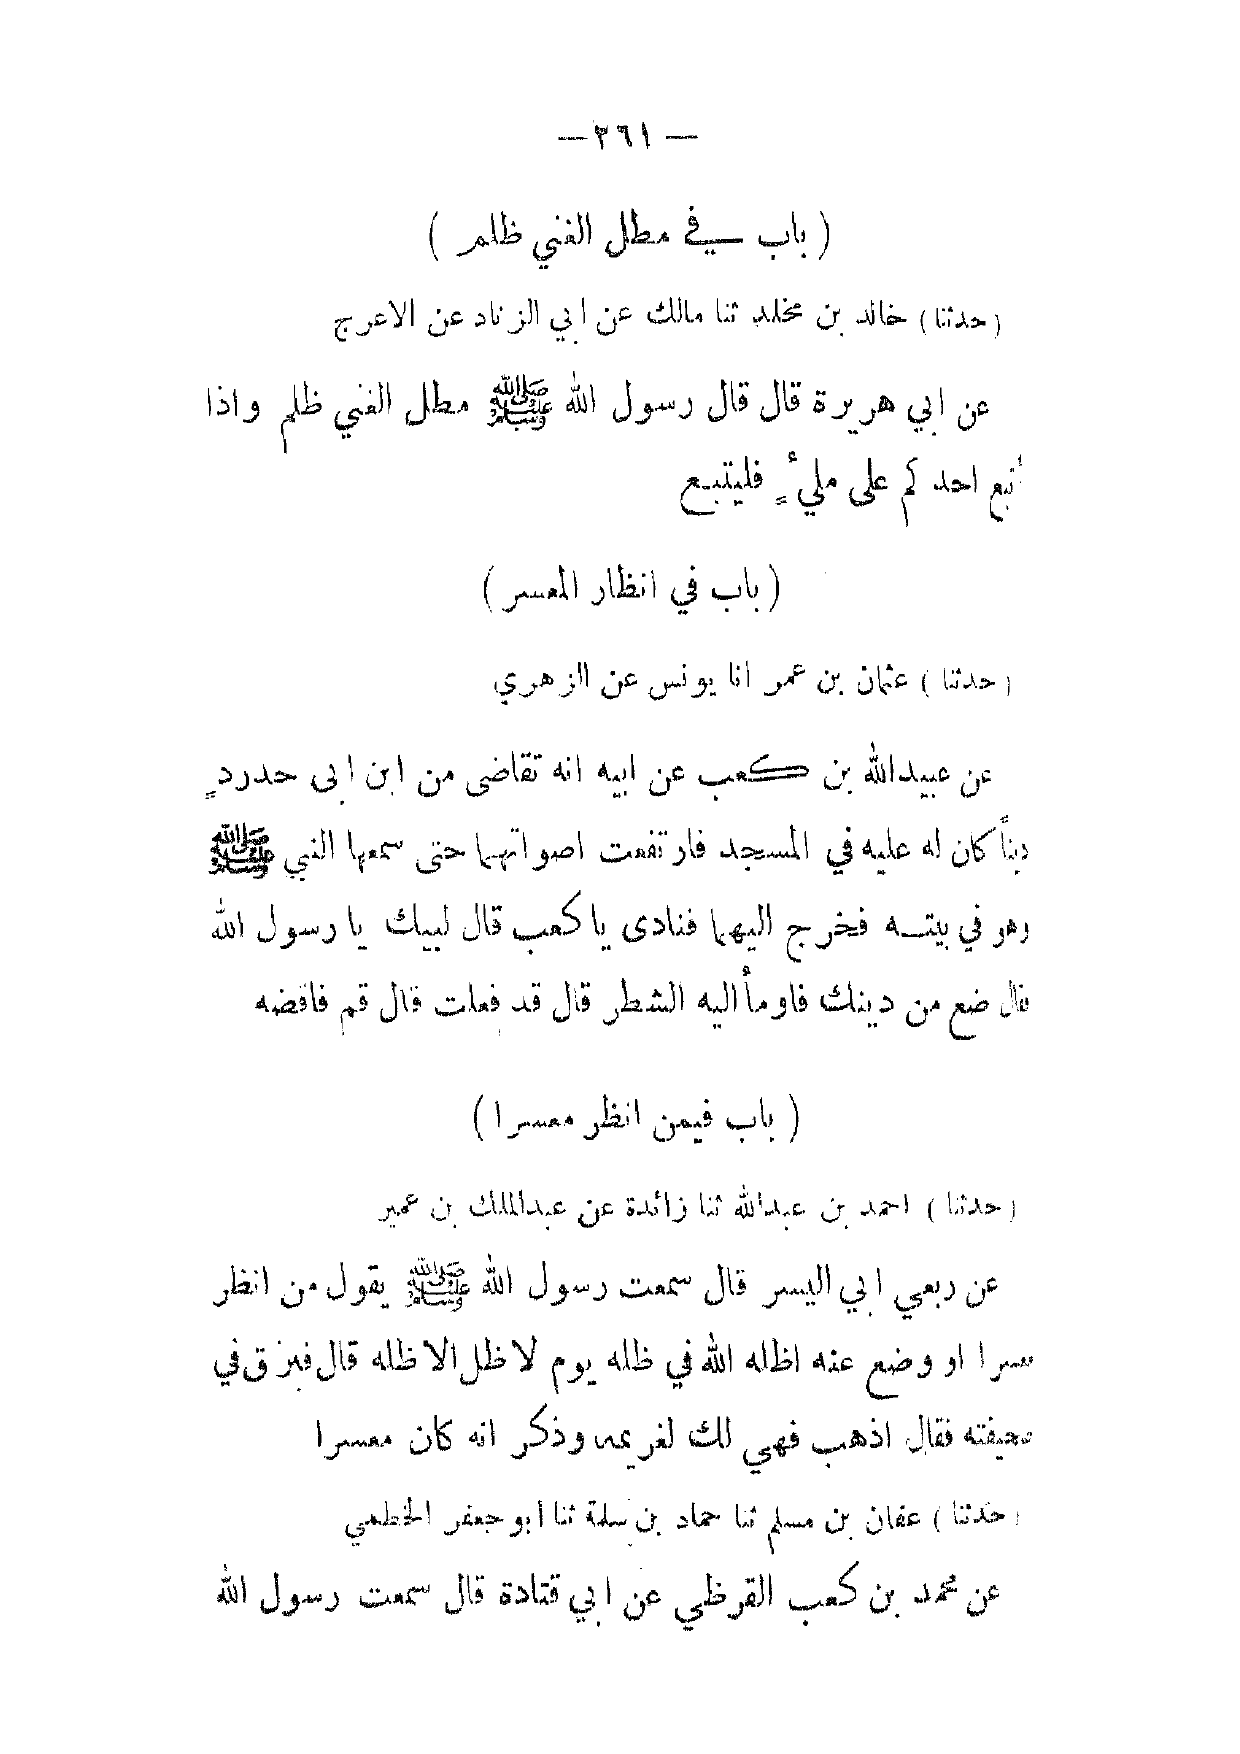 — ٢٦١ —
( باب في مطل الغني ظلم )
( حدثنا ) خالد بن مخلد ثنا مالك عن ابي الزناد عن الاعرج
عن ابي هريرة قال قال رسول الله ﷺ مطل الغني ظلم واذا
أتبع احدكم على مليءٍ فليتبع
( باب في انظار المعسر )
( حدثنا ) عثمان بن عمر انا يونس عن الزهري
عن عبيدالله بن كعب عن ابيه انه تقاضى من ابن ابى حدردٍ
ديناً كان له عليه في المسجد فارتفعت اصواتهما حتى سمعها النبي ﷺ
وهو في بيته فخرج اليهما فنادى يا كعب قال لبيك يا رسول الله
قال ضع من دينك فاومأ اليه الشطر قال قد فعلت قال قم فاقضه
( باب فيمن انظر معسرا )
( حدثنا ) احمد بن عبدالله ثنا زائدة عن عبدالملك بن عمير
عن ربعي ابي اليسر قال سمعت رسول الله ﷺ يقول من انظر
معسرا او وضع عنه اظله الله في ظله يوم لا ظل الا ظله قال فبزق في
صحيفته فقال اذهب فهي لك لغريمه وذكر انه كان معسرا
( حدثنا ) عفان بن مسلم ثنا حماد بن سلمة ثنا أبو جعفر الخطمي
عن محمد بن كعب القرظي عن ابي قتادة قال سمعت رسول الله